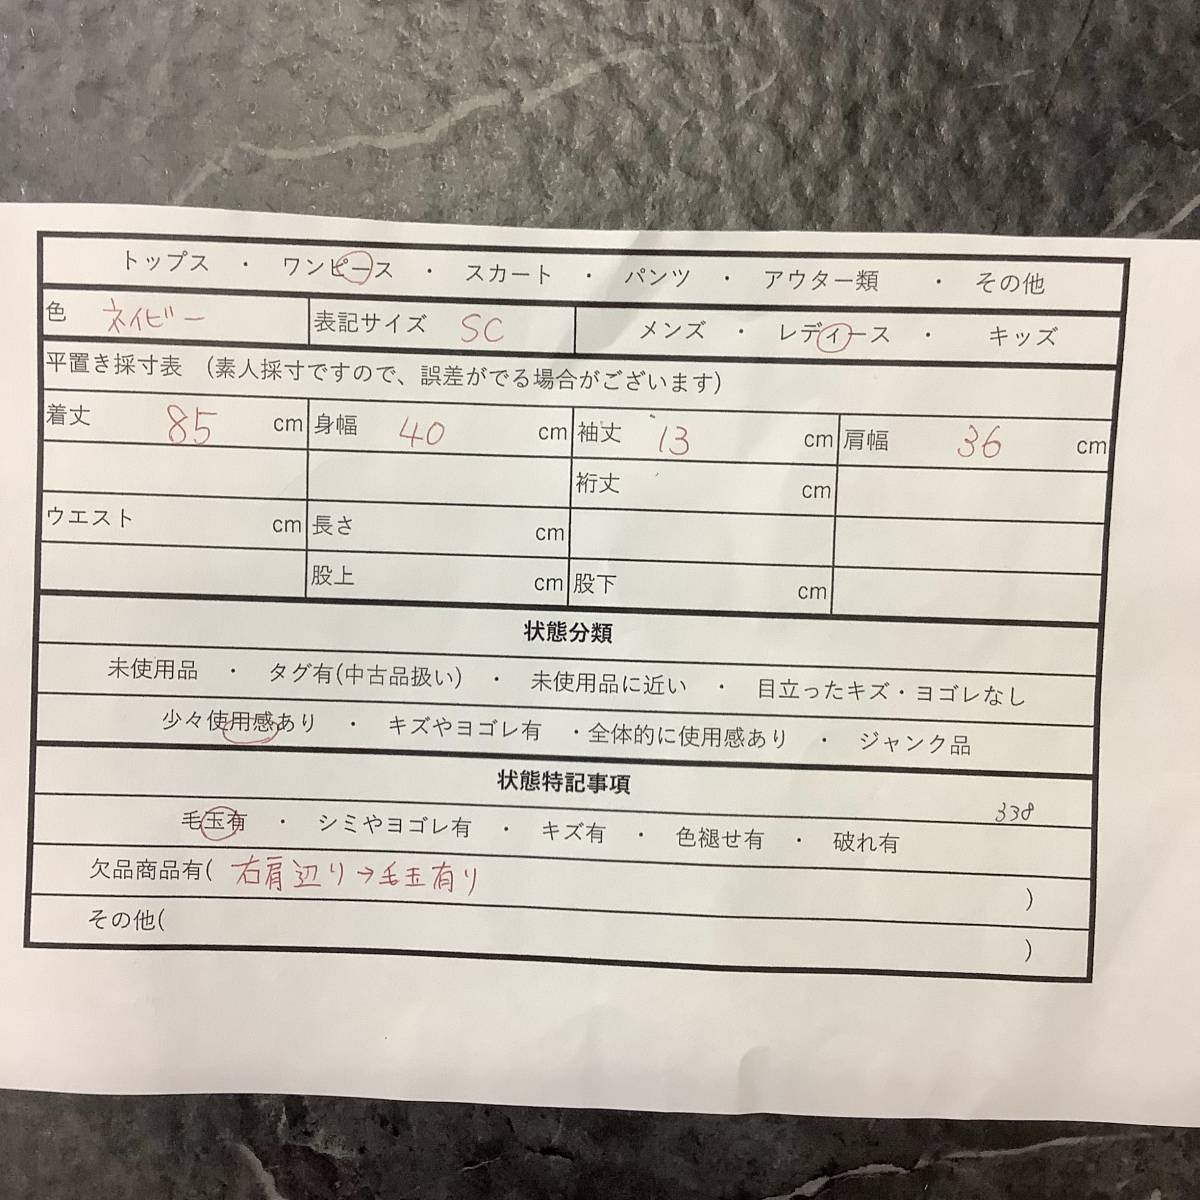 トップス ・ ワンピース ・ スカート ・ パンツ ・ アウター類 ・ その他
色 ネイビー 表記サイズ SC メンズ ・ レディース ・ キッズ
平置き採寸表 (素人採寸ですので、誤差がでる場合がございます)
着丈 85 cm 身幅 40 cm 袖丈 13 cm 肩幅 36 cm
裄丈 cm
ウエスト cm 長さ cm
股上 cm 股下 cm
状態分類
未使用品 ・ タグ有(中古品扱い) ・ 未使用品に近い ・ 目立ったキズ・ヨゴレなし
少々使用感あり ・ キズやヨゴレ有 ・全体的に使用感あり ・ ジャンク品
状態特記事項 338
毛玉有 ・ シミやヨゴレ有 ・ キズ有 ・ 色褪せ有 ・ 破れ有
欠品商品有( 右肩辺り→毛玉有り )
その他( )